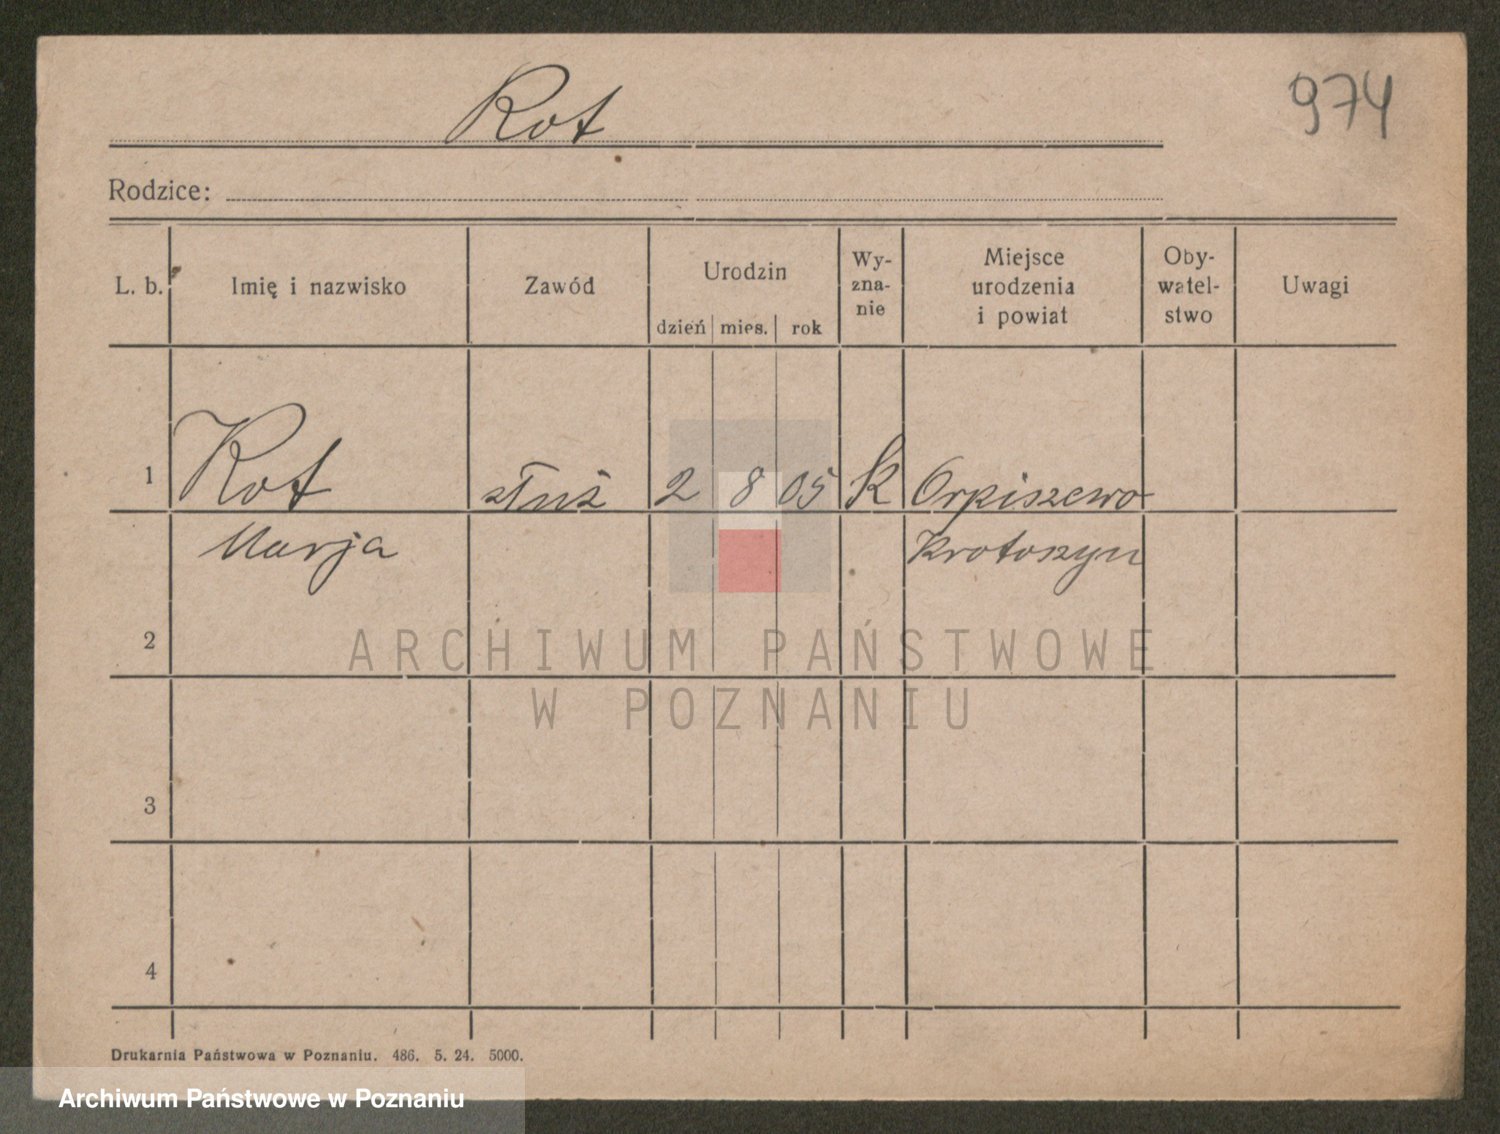 Rot
974
Rodzice:
L. b.
Imię i nazwisko
Zawód
Urodzin
dzień mies. rok
Wy-
zna-
nie
Miejsce
urodzenia
i powiat
Oby-
watel-
stwo
Uwagi
1 Rot służ 2 8 05 k Orpiszewo
Marja Krotoszyn
2
3
4
ARCHIWUM PAŃSTWOWE
W POZNANIU
Drukarnia Państwowa w Poznaniu. 486. 5. 24. 5000.
Archiwum Państwowe w Poznaniu